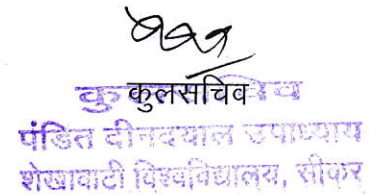 कुलसचिव
कुलसचिव
पंडित दीनदयाल उपाध्याय
शेखावाटी विश्वविद्यालय, सीकर